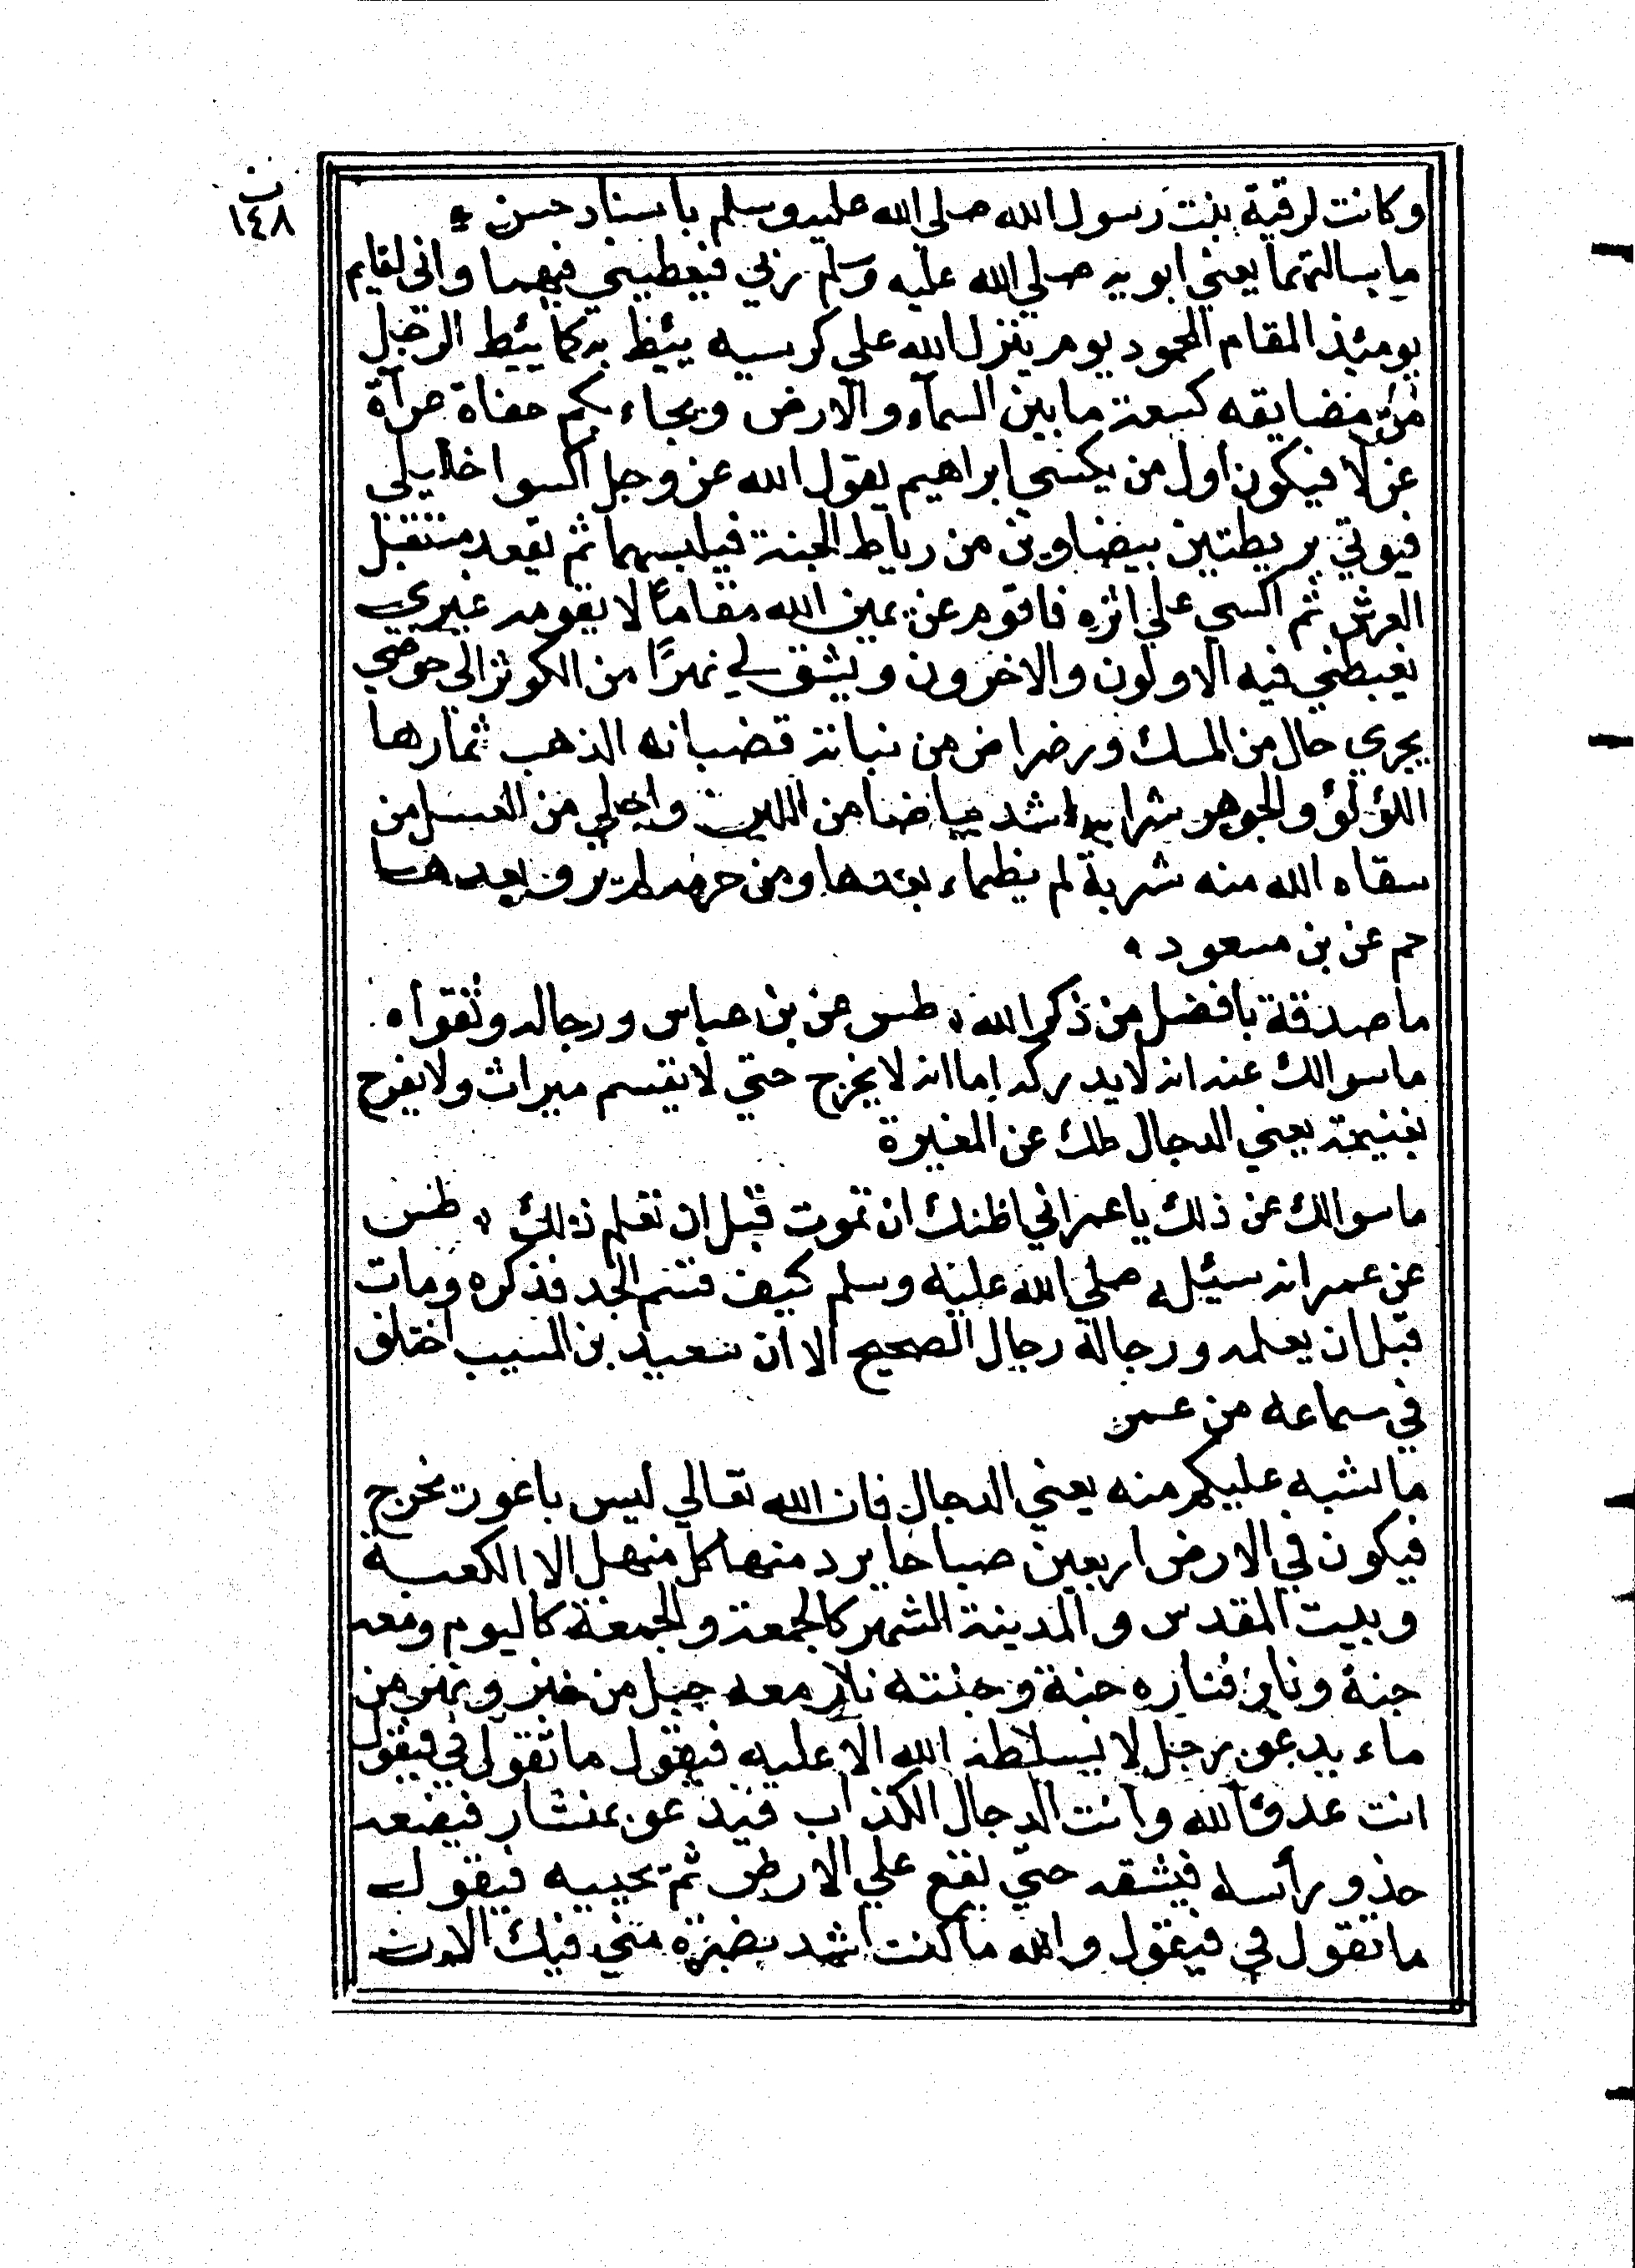 ن
١٤٨
وكانت لرقية بنت رسول الله صلي الله عليه وسلم باسناد حسن
ما سالتهما يعني ابويه صلي الله عليه وسلم ربي فيعطيني فيهما واني لقايم
يومئذ المقام المحمود يوم ينزل الله علي كرسيه يئط به كما يئط الرحل
من مضايقه كسعة ما بين السمآء والارض ويجاء بكم حفاة عرآة
غزلا فيكون اول من يكسي ابراهيم يقول الله عز وجل اكسوا خليلي
فيوتي بريطتين بيضاوين من رياط الجنة فيلبسهما ثم يقعد مستقبل
العرش ثم اكسي علي اثره فاقوم عن يمين الله مقاماً لا يقومه غيري
يغبطني فيه الاولون والاخرون ويشق لي نهرًا من الكوثر الي حوضي
يجري حال من المسك ورضراض من نباته قضبانه الذهب ثمارها
اللؤلؤ والجوهر شرابه اشد بياضا من اللبن واحلي من العسل من
سقاه الله منه شربة لم يظماء بعدها ومن حرمه لم يرو بعدها
حم عن بن مسعود
ما صدقة بافضل من ذكر الله طس عن بن عباس ورجاله وثقوا
ما سوالك عنه انه لا يدركه اما انه لا يخرج حتي لا يقسم ميراث ولا يفرح
بغنيمة يعني الدجال طك عن المغيرة
ما سوالك عن ذلك يا عمر اني اظنك ان تموت قبل ان تعلم ذلك طس
عن عمر انه سئيله صلي الله عليه وسلم كيف قسم الجد فذكره ومات
قبل ان يعلمه ورجالة رجال الصحيح الا ان سعيد بن المسيب اختلف
في سماعه من عمر
ما شبه عليكم منه يعني الدجال فان الله تعالي ليس باعور يخرج
فيكون في الارض اربعين صباحا يرد منها كل منهل الا الكعبة
وبيت المقدس والمدينة الشهر كالجمعة والجمعة كاليوم ومعه
جنة ونار فناره جنة وجنته نار معه جبل من خبز ونهر من
ماء يدعو برجل لا يسلطه الله الا عليه فيقول ما تقول في فيقول
انت عدو الله وانت الدجال الكذاب فيدعو بمنشار فيضعه
حذو رأسه فيشقه حتي يقع علي الارض ثم يحييه فيقول
ما تقول في فيقول والله ما كنت اشد بصيرة مني فيك الان